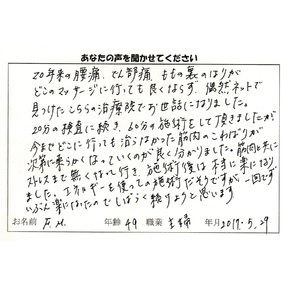 あなたの声を聞かせてください
20年来の腰痛、でん部痛、ももの裏のはりが
どこのマッサージに行っても良くならず、偶然ネットで
見つけたこちらの治療院でお世話になりました。
20分の検査に続き、60分の施術をして頂きましたが
今までどこに行っても治らなかった筋肉のこわばりが
次第に柔らかくなっていくのが良く分かりました。筋肉と共に
ストレスまで無くなって行き、施術後は本当に楽になり
ました。エネルギーを使っての施術だそうですが、一回でず
いぶん楽になったのでしばらく頼りようと思います。
お名前 F.M. 年齢 49 職業 主婦 年月 2017.5.29